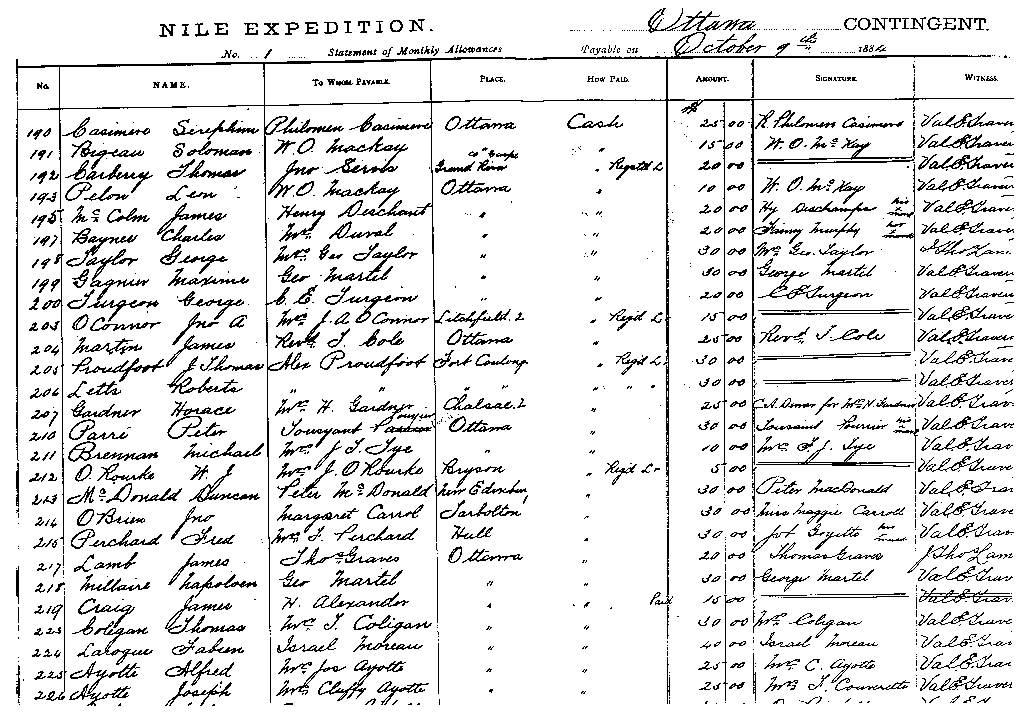 NILE EXPEDITION. Ottawa CONTINGENT.
No. 1 Statement of Monthly Allowances Payable on October 9th 1884
No. NAME. TO WHOM PAYABLE. PLACE. HOW PAID. AMOUNT. SIGNATURE. WITNESS.
190 Casimere Serephim Philomen Casimere Ottawa Cash 25 00 R. Philomen Casimere Val E. Traver
191 Bigeau Soloman W. O. Mackay " " 15 00 W. O. McKay Val E. Traver
192 Carberry Thomas Jno Servis Grand River " Registd L 20 00 Val E. Traver
193 Pelon Leon W. O. Mackay Ottawa " 10 00 W. O. McKay Val E. Traver
195 McColm James Henry Deschant " " 20 00 Hy Deschamps his mark Val E. Traver
197 Baynes Charles Mrs Duval " " 20 00 Fanny Murphy her mark Val E. Traver
198 Taylor George Mrs Geo Taylor " " 30 00 Mrs Geo. Taylor J Tho Lam
199 Gagnier Maxime Geo Martel " " 30 00 George Martel Val E. Traver
200 Turgeon George C. E. Turgeon " " 20 00 C E Turgeon Val E. Traver
203 O'Connor Jno A Mrs J. A. O'Connor Litchfield. 2 " Regd L 15 00 Val E. Traver
204 Martin James Revd T. Cole Ottawa " 25 00 Revd T Cole Val E. Traver
205 Proudfoot J Thomas Alex Proudfoot Fort Coulonge " Regd L 30 00 Val E. Traver
206 Letts Roberts " " " " " " 30 00 Val E. Traver
207 Gardner Horace Mrs H. Gardner Chelsae. 2 " 25 00 C. A. Dewar for Mrs H Gardner Val E. Trave
210 Parré Peter Tousyant Ottawa " 30 00 Toussaint Fourrier his mark Val E. Trave
211 Brennan Michael Mrs J T. Tye " " 10 00 Mrs T. J. Tye Val E. Trave
212 O. Rourke W. J. Mrs J. O'Rourke Bryson " Regd Lr 5 00 Val E. Trave
213 McDonald Duncan Peter McDonald New Edinburg " 30 00 Peter MacDonald Val E. Trav
214 O'Brien Jno Margaret Carrol Torbolton " 30 00 Miss Maggie Carroll Val E. Trav
215 Perchard Fred Mrs T. Perchard Hull " 30 00 Jos Goyette his mark Val E. Trav
217 Lamb James Thos Graves Ottawa " 20 00 Thomas Graves J Tho Lam
218 Millaire Napoleon Geo Martel " " 30 00 George Martel Val E. Trav
219 Craig James H. Alexander " " Paid 15 00 Val E. Trav
223 Coligan Thomas Mrs T. Coligan " " 30 00 Mrs Coligan Val E. Trav
224 Laroque Fabien Israel Moreau " " 40 00 Israel Moreau Val E. Trav
225 Ayotte Alfred Mrs Jos Ayotte " " 25 00 Mrs C. Ayotte Val E. Trav
226 Ayotte Joseph Mrs Cleffy Ayotte " " 25 00 Mrs T. Couverette Val E. Trav